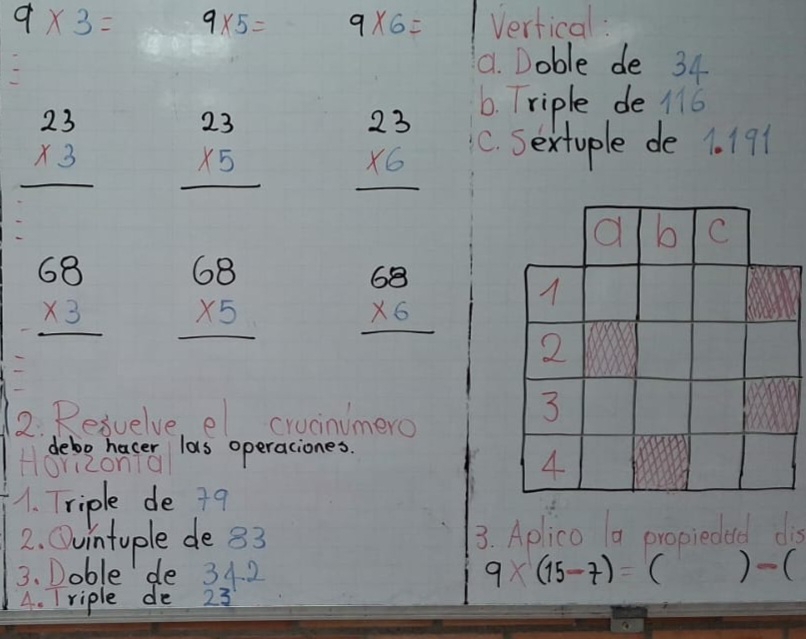 9 X 3 =
9 X 5 =
9 X 6 =
23
X 3
23
X 5
23
X 6
68
X 3
68
X 5
68
X 6
2. Resuelve el crucinúmero
debo hacer las operaciones.
Horizontal
1. Triple de 79
2. Quíntuple de 83
3. Doble de 342
4. Triple de 23
Vertical:
a. Doble de 34
b. Triple de 116
c. Séxtuple de 1.191
a b c
1
2
3
4
3. Aplico la propiedad dis
9 X (15-7) = ( ) - (